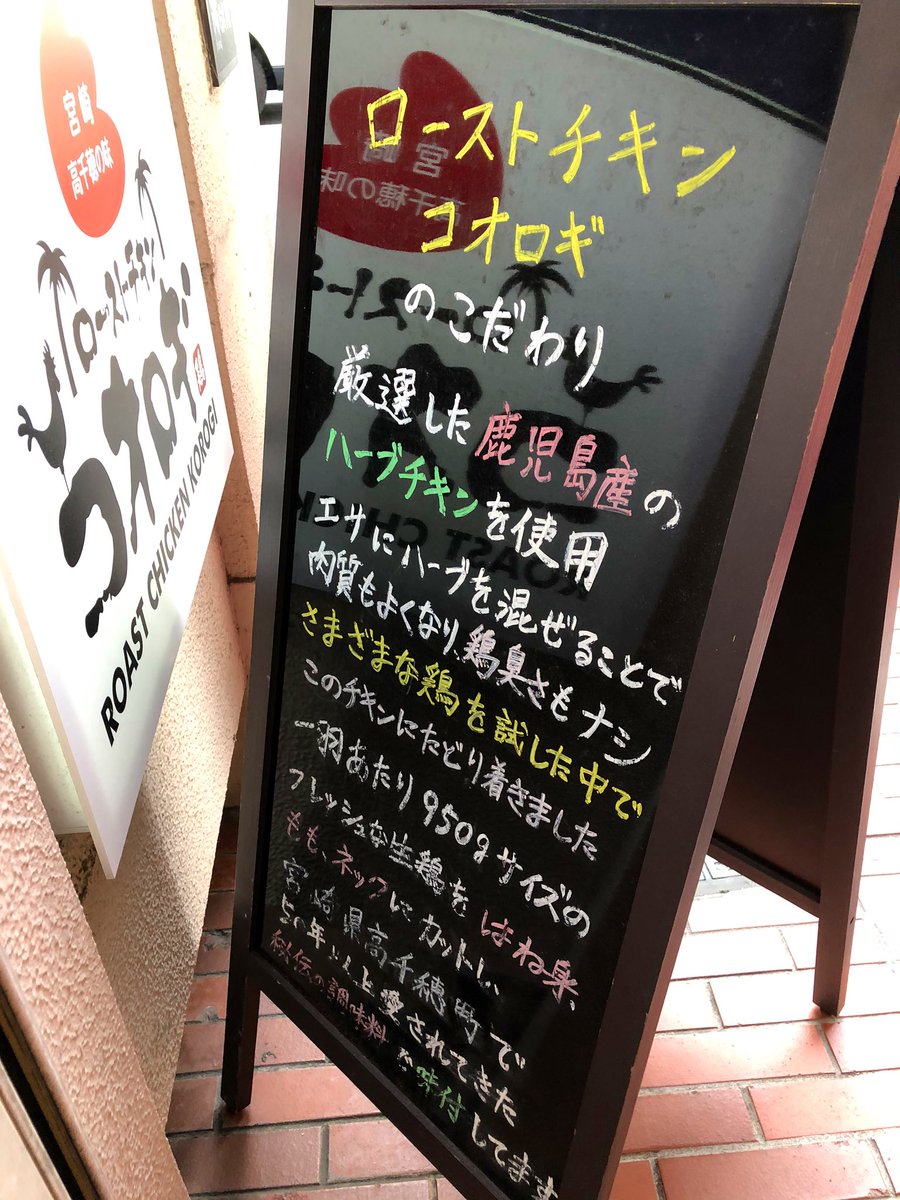 宮崎
高千穂の味
ローストチキン
コオロギ
ROAST CHICKEN KOROGI
ローストチキン
コオロギ
のこだわり
厳選した鹿児島産の
ハーブチキンを使用
エサにハーブを混ぜることで
肉質もよくなり、鶏臭さもナシ
さまざまな鶏を試した中で
このチキンにたどり着きました
一羽あたり950gサイズの
フレッシュな生鶏をはね身、
もも、ネックにカットし、
宮崎県高千穂町で
50年以上愛されてきた
秘伝の調味料で味付してます